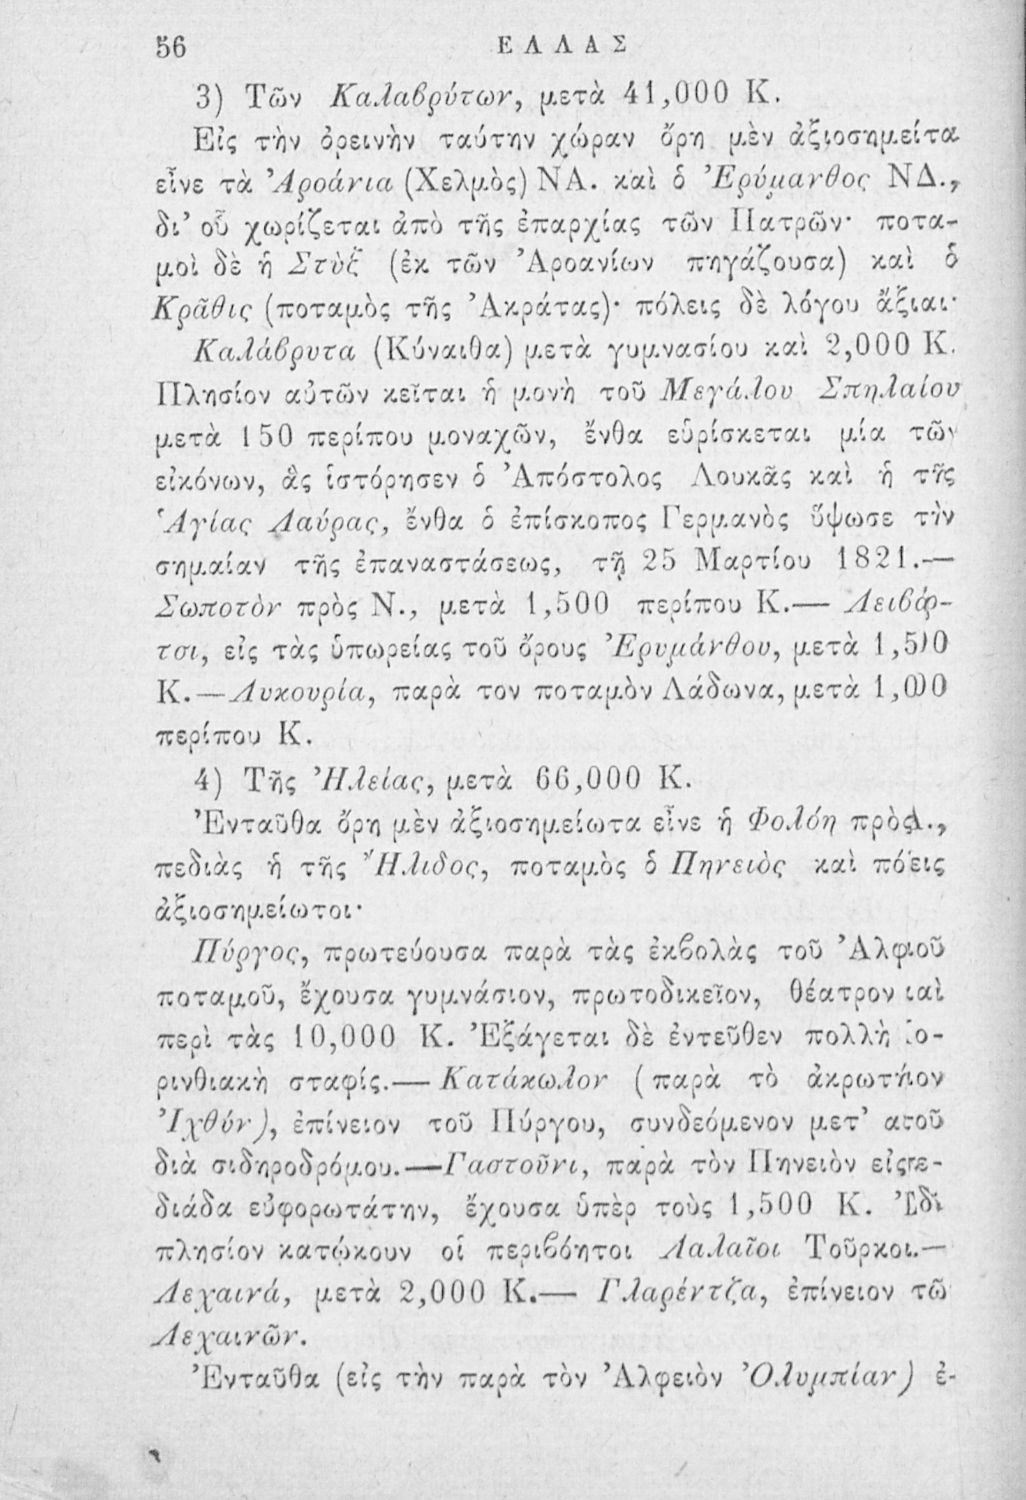 56 ΕΛΛΑΣ
3) Τῶν Καλαβρύτων, μετὰ 41,000 Κ.
Εἰς τὴν ὀρεινὴν ταύτην χώραν ὄρη μὲν ἀξιοσημείτα
εἶνε τὰ Ἀροάνια (Χελμὸς) ΝΑ. καὶ ὁ Ἐρύμανθος ΝΔ.,
δι’ οὗ χωρίζεται ἀπὸ τῆς ἐπαρχίας τῶν Πατρῶν· ποτα-
μοὶ δὲ ἡ Στὺξ (ἐκ τῶν Ἀροανίων πηγάζουσα) καὶ ὁ
Κρᾶθις (ποταμὸς τῆς Ἀκράτας)· πόλεις δὲ λόγου ἄξιαι·
Καλάβρυτα (Κύναιθα) μετὰ γυμνασίου καὶ 2,000 Κ.
Πλησίον αὐτῶν κεῖται ἡ μονὴ τοῦ Μεγάλου Σπηλαίου
μετὰ 150 περίπου μοναχῶν, ἔνθα εὑρίσκεται μία τῶν
εἰκόνων, ἃς ἱστόρησεν ὁ Ἀπόστολος Λουκᾶς καὶ ἡ τῆς
Ἁγίας Λαύρας, ἔνθα ὁ ἐπίσκοπος Γερμανὸς ὕψωσε τὴν
σημαίαν τῆς ἐπαναστάσεως, τῇ 25 Μαρτίου 1821.—
Σωποτὸν πρὸς Ν., μετὰ 1,500 περίπου Κ.— Λειβάρ-
τσι, εἰς τὰς ὑπωρείας τοῦ ὄρους Ἐρυμάνθου, μετὰ 1,500
Κ.—Λυκουρία, παρὰ τον ποταμὸν Λάδωνα, μετὰ 1,000
περίπου Κ.
4) Τῆς Ἠλείας, μετὰ 66,000 Κ.
Ἐνταῦθα ὄρη μὲν ἀξιοσημείωτα εἶνε ἡ Φολόη πρὸςΑ.,
πεδιὰς ἡ τῆς Ἤλιδος, ποταμὸς ὁ Πηνειὸς καὶ πόεις
ἀξιοσημείωτοι·
Πύργος, πρωτεύουσα παρὰ τὰς ἐκβολὰς τοῦ Ἀλφιοῦ
ποταμοῦ, ἔχουσα γυμνάσιον, πρωτοδικεῖον, θέατρον καὶ
περὶ τὰς 10,000 Κ. Ἐξάγεται δὲ ἐντεῦθεν πολλὴ Κο-
ρινθιακὴ σταφίς.— Κατάκωλον (παρὰ τὸ ἀκρωτήιον
Ἰχθύν), ἐπίνειον τοῦ Πύργου, συνδεόμενον μετ’ ατοῦ
διὰ σιδηροδρόμου.—Γαστοῦνι, παρὰ τὸν Πηνειὸν εἰς πε-
διάδα εὐφορωτάτην, ἔχουσα ὑπὲρ τοὺς 1,500 Κ. Ἐδῶ
πλησίον κατῴκουν οἱ περιβόητοι Λαλαῖοι Τοῦρκοι.—
Λεχαινά, μετὰ 2,000 Κ.— Γλαρέντζα, ἐπίνειον τῶ
Λεχαινῶν.
Ἐνταῦθα (εἰς τὴν παρὰ τὸν Ἀλφειὸν Ὀλυμπίαν) ἐ-